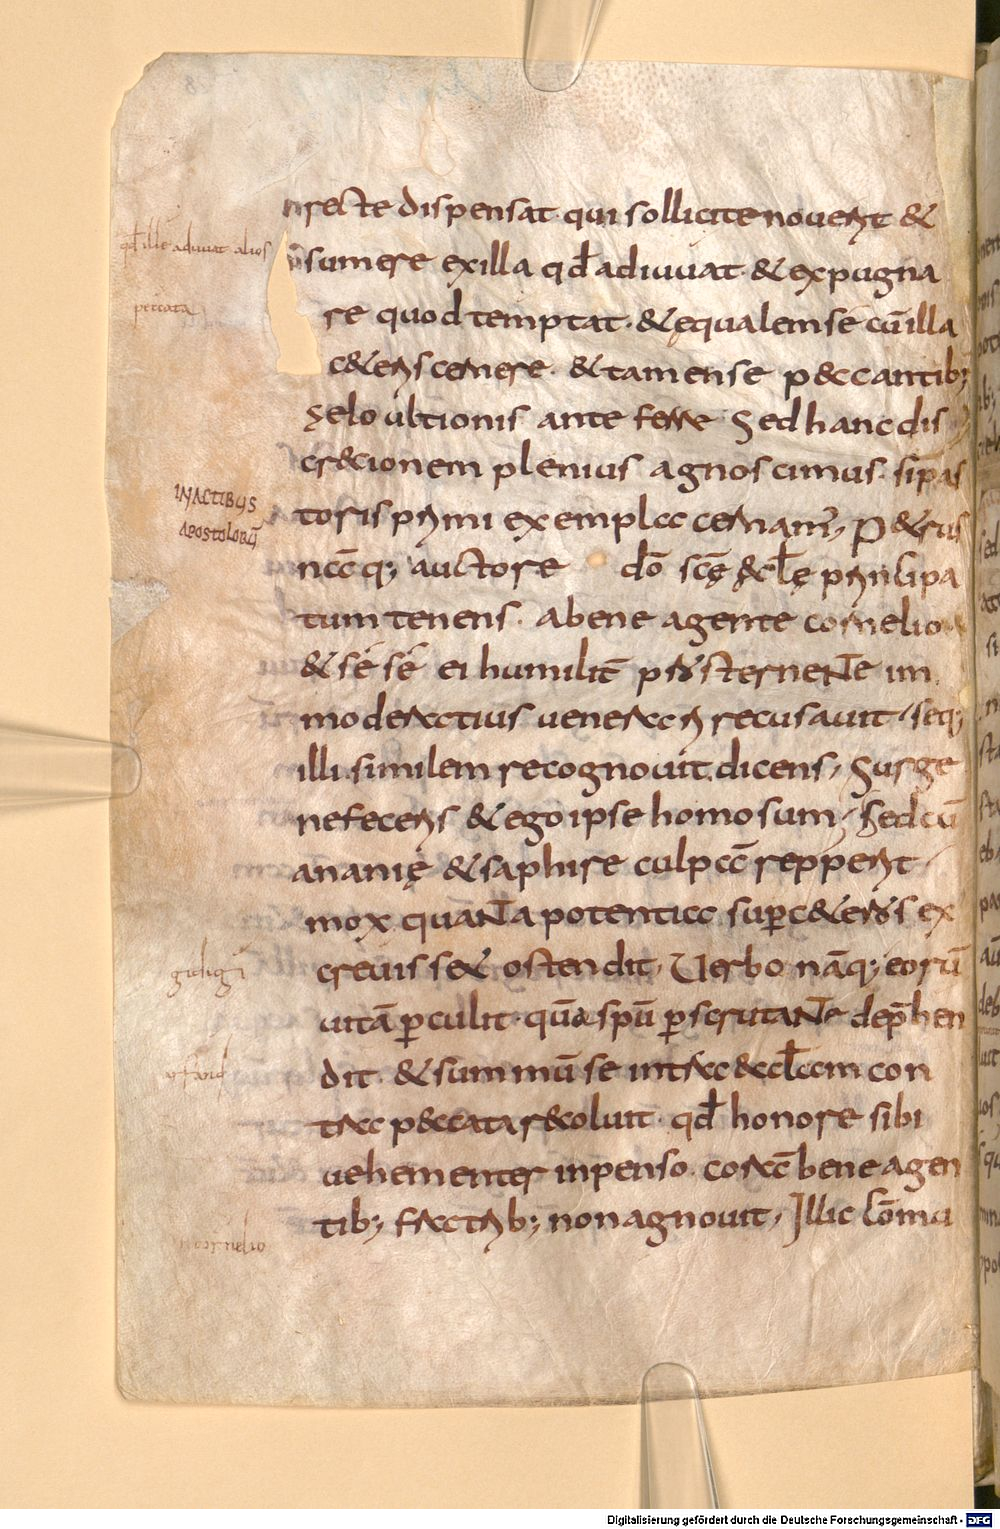 recte dispensat qui sollicite nouerit &
sumere ex illa qđ adiuuat & expugna
re quod temptat · & ęqualem se cū illa
c&eris cernere · & tamen se p&cantib;
zelo ultionis ante ferre Sed hanc dis
cr&ionem plenius agnoscimus · si pas
toris primi exempla cernam, P&rus
nāq; auctore dō scę &cłę principa
tum tenens · a bene agente cornelio
& sé sé ei humilit̄ prosterneNTe im
moderatius uenerari recusauit, seq;
illi similem recognouit dicens, Surge
ne feceris & ego ipse homo sum, Sed cū
ananię & saphire culpā repperit
mox quaNTa potentia sup̱ c&eros ex
creuiss& ostendit, Uerbo nāq; eorū
uitā ꝑculit · quā spū ꝑscrutaNTe dep̄hen
dit · & summū se intra &cłam con
tra p&cata r&oluit · qđ honore sibi
uehementer inpenso corā bene agen
tib; fratrib; non agnouit, Illic
qđ ille adiuuat alios
peccata
IN ACTIBUS
APOSTOLORŪ
cornelio
Digitalisierung gefördert durch die Deutsche Forschungsgemeinschaft - DFG